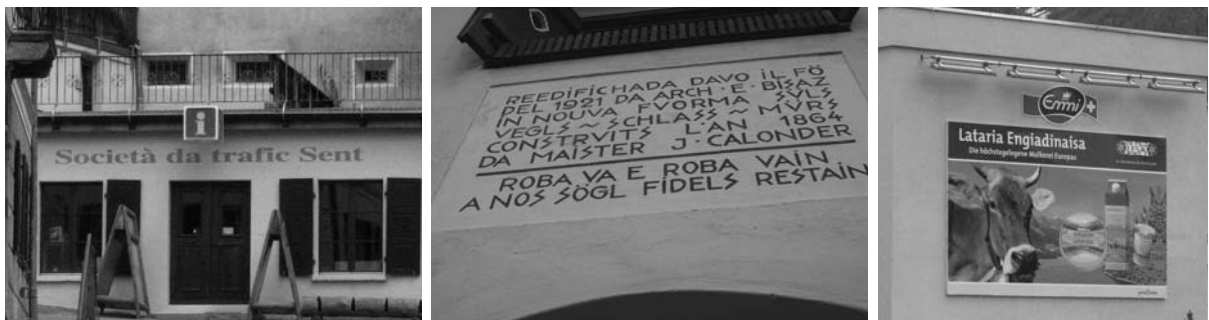 i
Società da trafic Sent
REEDIFICHADA DAVO IL FÖ
DEL 1921 DA ARCH · E · BISAZ
IN NOUVA FVORMA SVLS
VEGLS ~ SCHLASS ~ MVRS
CONSTRVITS L'AN 1864
DA MAISTER J · CALONDER
ROBA VA E ROBA VAIN
A NOS SÖGL FIDELS RESTAIN
Emmi
Lataria Engiadinaisa
Die höchstgelegene Molkerei Europas